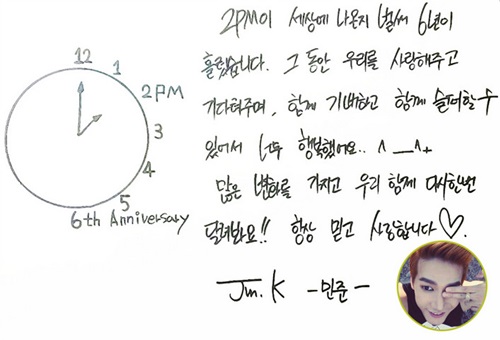 12
1
2PM
3
4
5
6th Anniversary
2PM이 세상에 나온지 벌써 6년이
흘렀습니다. 그 동안 우리를 사랑해주고
기다려주며, 함께 기뻐하고 함께 슬퍼할 수
있어서 너무 행복했어요.. ^__^+
많은 변화를 가지고 우리 함께 다시한번
달려봐요!! 항상 믿고 사랑합니다♡.
Jun. K -민준-